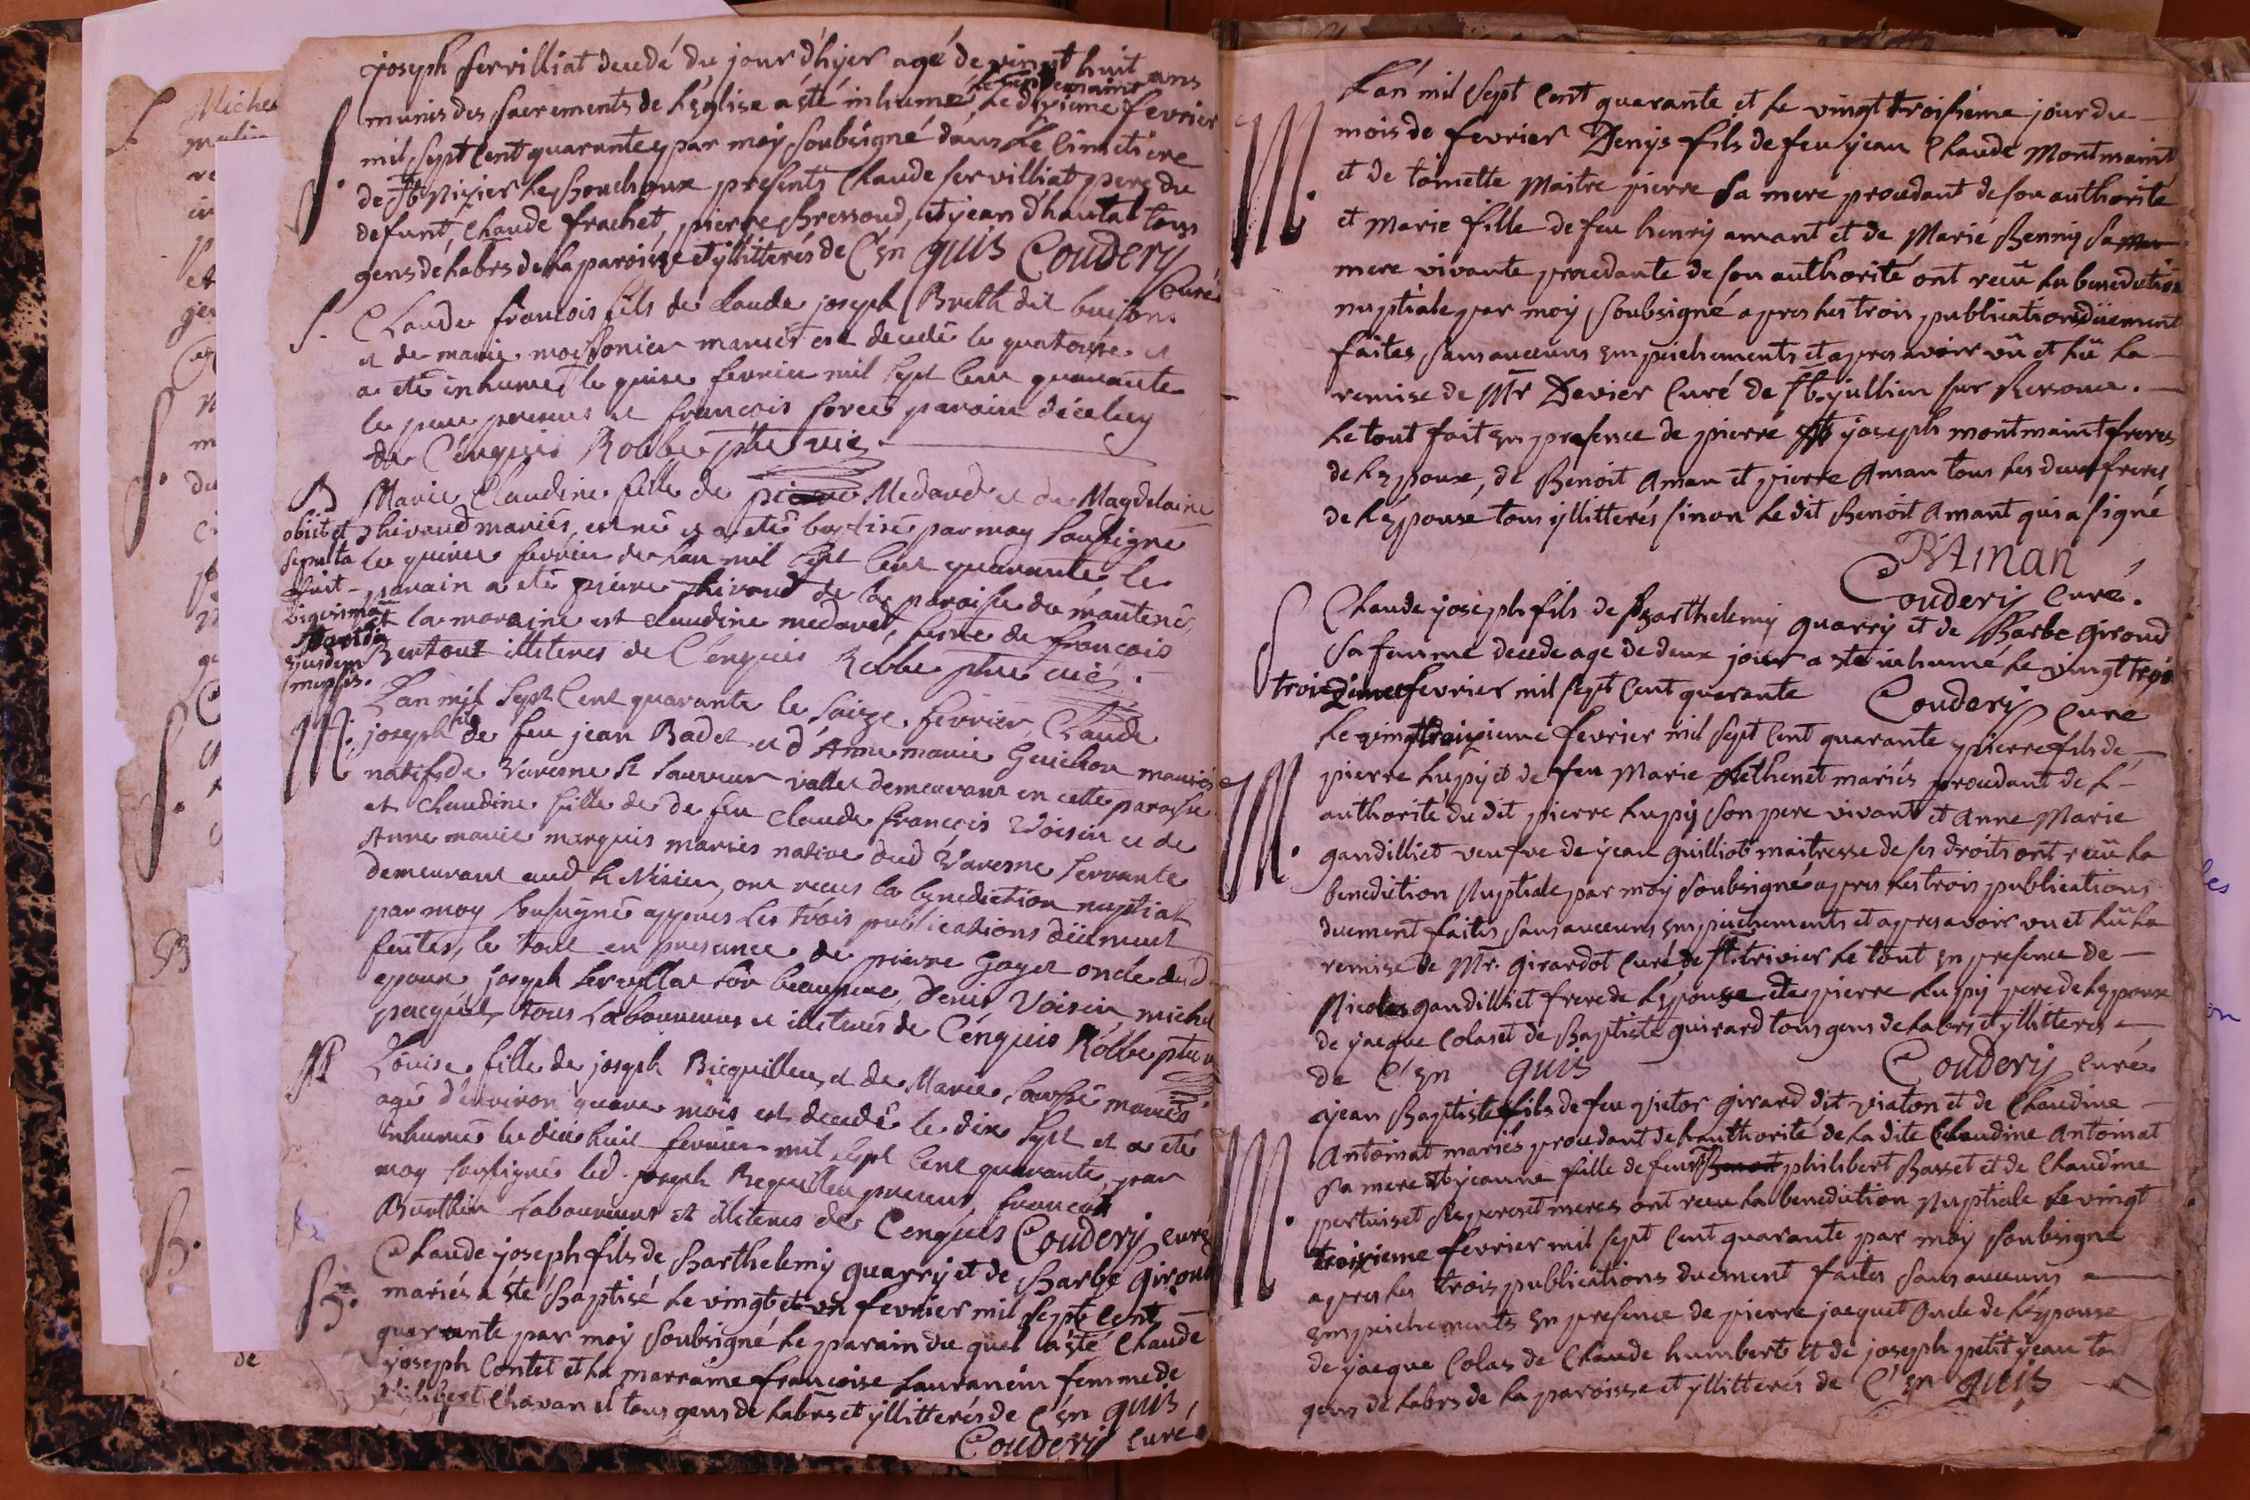 joseph servilliat decedé du jour d'hyer agé de vingt huit ans
munis des sacrements de l'Eglise a été inhumé le dixieme fevrier
mil sept cent quarante par moy soubsigné dans le cimetiere
de St Nizier le Bouchoux presents Claude servilliat pere du
defunt, Claude frachet, pierre Bressoud, et jean d'hautal tous
gens de labrs de la paroisse et yllitterés de C'en quis Coudery
Curé
S.
S.
Claude francois fils de Claude joseph Breth dit buison
et de marie moissonier mariés est decedé le quatorze et
a eté inhumé le quise fevrier mil sept cent quarante
le pere presens et francois force parain d'iceluy
de C'enquis Robbe ptre vic
B
Marie Claudine fille de Medard et de Magdelaine
obiit et
thivaud mariés, est né et a eté baptisé par moy soussigne
sepulta
le quinze fevrier de l'an mil sept cent quarante le
fuit
parain a eté pierre thivaud de la paroisse de mantené
vigesima
et la maraine est claudine medard, feme de francois
ejusdem
Bertout illiteres de C'enquis Robbe ptre vic
mensis.
M.
L'an mil sept cent quarante le saize fevrier, Claude
joseph de feu jean Badet et d'Anne marie Guichon mariés
natif de Varesne St Sauveur vallet demeurant en cette paroisse
et claudine fille de de feu claude francois Voisin et de
Anne marie marquis mariés native dud Varesne servante
demeurant aud St Nisier, ont receus la benediction nuptial
par moy soussigné apprés les trois publications düement
feites, le tout en presence de pierre Gayet oncle dud
epoux joseph servillat son beaupere, denis Voisin michel
pacquel tous laboureurs et illiterés de C'enquis Robbe ptre v
Louise fille de joseph Bicquilleu et de Marie mariés
agé d'environ quatre mois est decedé le dix sept et a eté
inhumé le dix huit fevrier mil sept cent quarante par
moy soussigné led. joseph Bequilleu present, francois
Burthin laboureurs et illiteres de C'enquis Coudery curé
B.
Claude joseph fils de Barthelemy quarry et de Barbe Giroud
mariés a été Baptisé le vingt et un fevrier mil sept cent
quarante par moy soubsigné le parain du quel a été Claude
joseph Contet et la marraine francoise Lauranein femme de
philibert Chavan et tous gens de labrs et yllitterés de C'en quis,
Coudery curé
M.
L'an mil sept cent quarante et le vingt troisieme jour du
mois de fevrier Denys fils de feu jean Claude Montmaint
et de toinette Maitre pierre sa mere procedant de son authorité
et Marie fille de feu henry amant et de Marie Benny sa
mere vivante procedante de son authorité ont receu la benediction
nuptiale par moy soubsigné apres les trois publications düement
faites sans aucuns empeichements et apres avoir vû et lû la
remise de Mr Devier Curé de St jullien sur Resoue.
Le tout fait en presence de pierre joseph montmaint freres
de l'Epoux, de Benoit Aman et pierre Aman tous les deux freres
de l'Epouse tous yllitterés sinon le dit Benoit Amant qui a signé
B Aman
Coudery curé.
S
Claude joseph fils de Barthelemy quarry et de Barbe Giroud
sa femme decede age de deux jour a ete inhumé le vingt
troisieme fevrier mil sept cent quarante Coudery curé
M.
Le vingt troisieme fevrier mil sept cent quarante pierre fils de
pierre Lupy et de feu Marie Nethenet mariés procedant de l'
authorité du dit pierre Lupy son pere vivant et Anne Marie
gandilliet veufve de jean Guilliot maitresse de ses droits ont receu la
benediction Nuptiale par moy soubsigné apres les trois publications
duement faites sans aucuns empeichements et apres avoir vu et lû la
remise de Mr. Girardot Curé de St trivier le tout en presence de
Nicolas gandilliet frere de l'epouse de pierre Lupy pere de l'Epoux
de jacque Colas et de Baptiste guirard tous gens de labrs et yllitterés
de C'en quis Coudery curé
M.
jean Baptiste fils de feu victor Girard dit viaton et de Claudine
Antoinat mariés procedant de l'authorité de la dite Claudine Antoinat
sa mere et jeanne fille de feu philibert Basset et de Claudine
pertuiset ses pere et meres ont receu la benediction Nuptiale le vingt
troixieme fevrier mil sept cent quarante par moy soubsigné
apres les trois publications duement faites sans aucuns
empeichements en presence de pierre jacquet oncle de l'Epouse
de jacque Colas de Claude humbert et de joseph petit jean to
gens de labrs de la paroisse et yllitterés de C'en quis